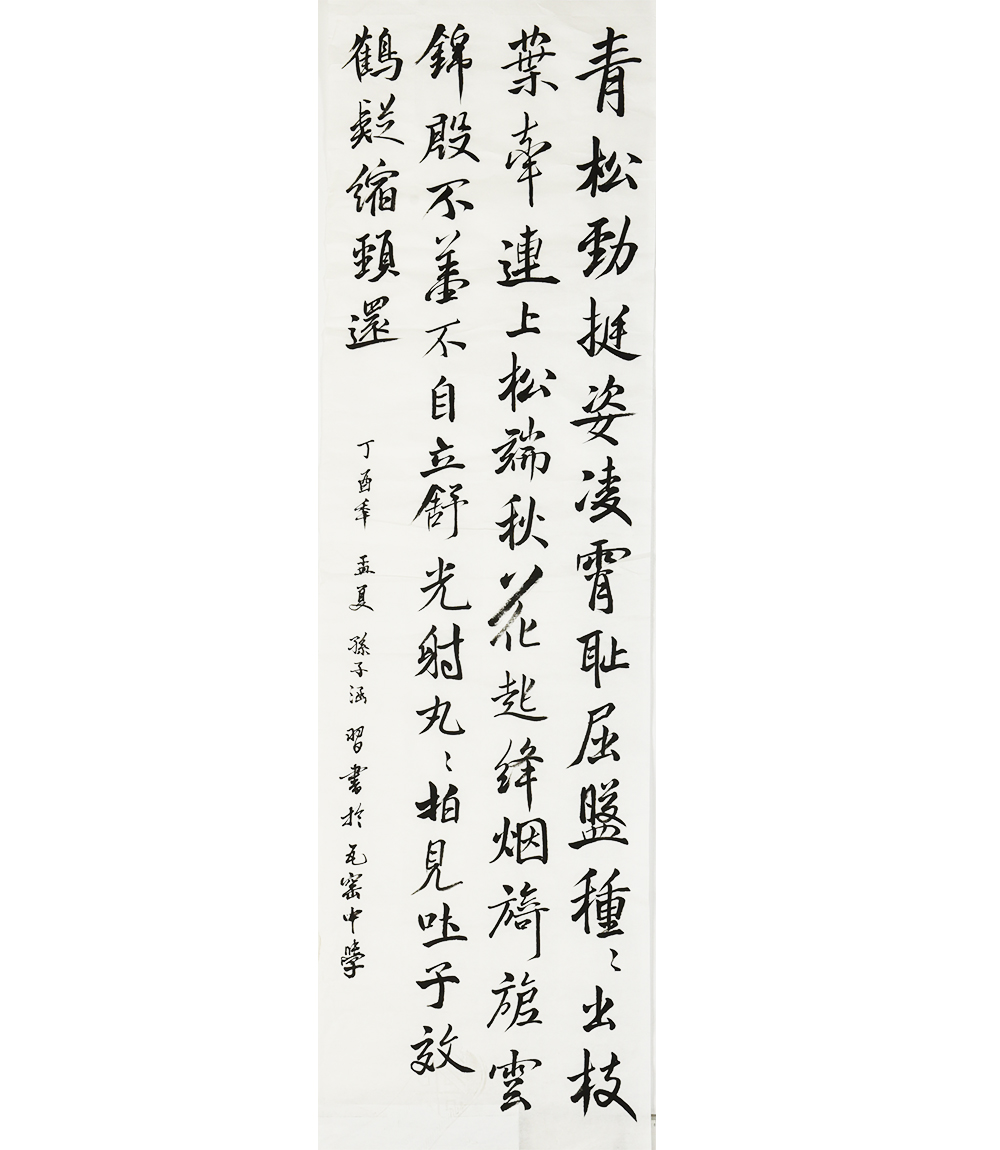 青松勁挺姿凌霄耻屈盤種〻出枝
葉牽連上松端秋花起絳烟旖旎雲
錦殷不羞不自立舒光射丸〻柏見吐子效
鶴疑縮頸還
丁酉年 孟夏 孫子涵 習書於瓦窑中學